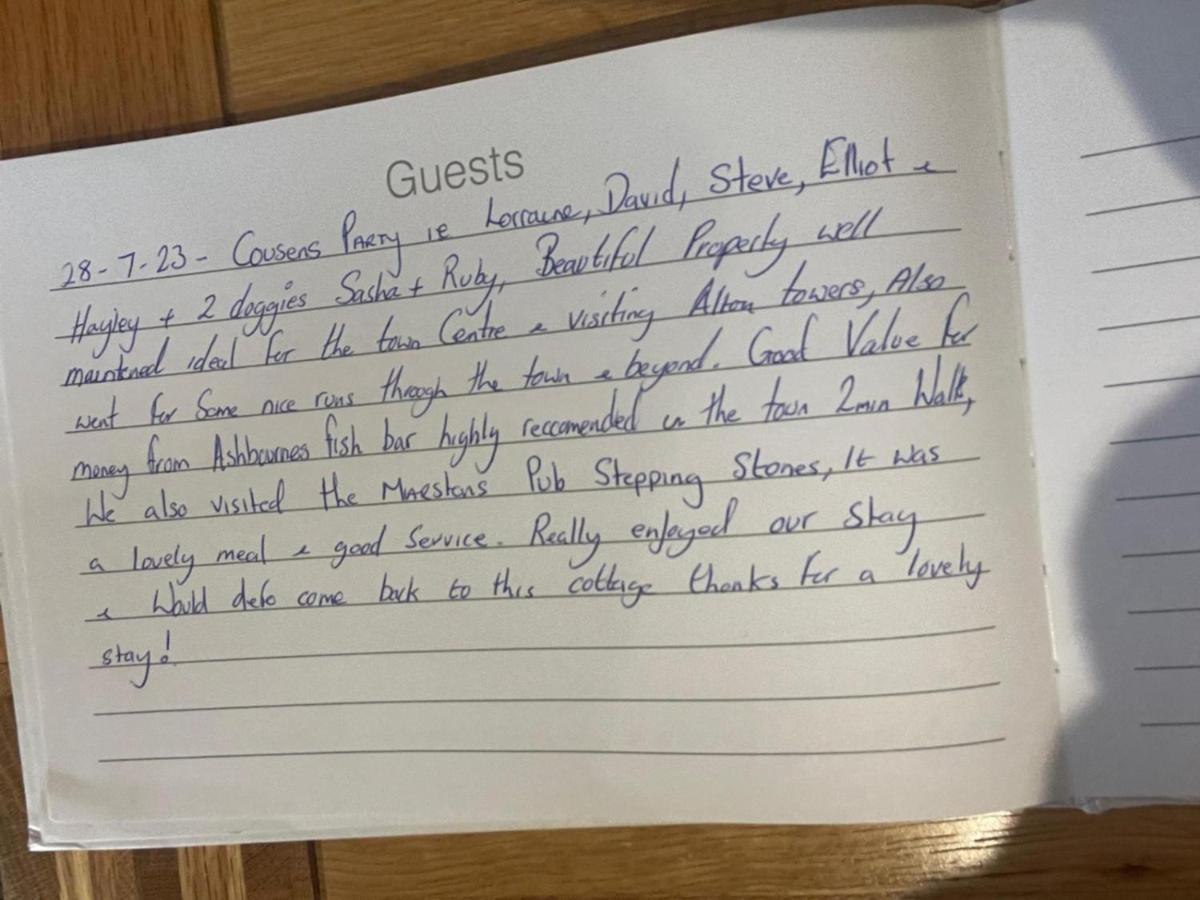 Guests
28-7-23- Cousens PARTY ie Lorraine, David, Steve, Elliot &
Hayley + 2 doggies Sasha + Ruby, Beautiful Property well
maintened ideal for the town Centre & visiting Alton towers, Also
went for Some nice runs through the town & beyond. Good Value for
money from Ashbournes fish bar highly reccomended in the town 2min Walk,
We also visited the Marstons Pub Stepping Stones, It was
a lovely meal & good Service. Really enjoyed our Stay
& Would defo come back to this cottage thanks for a lovely
stay!